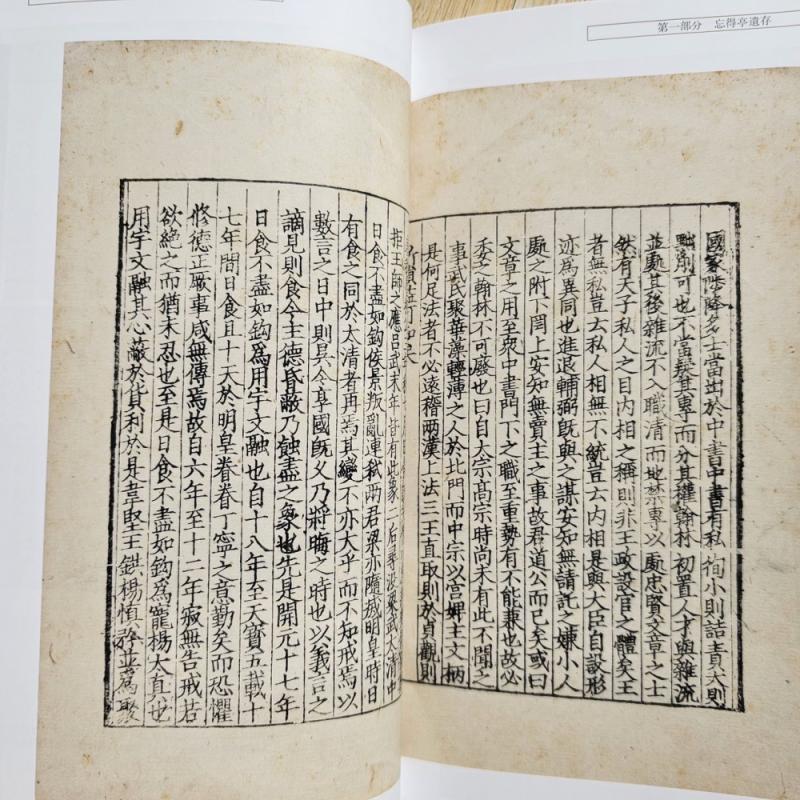 第一部分 忘得亭遺存
國家陟降多士當出於中書中書有私徇小則詰責大則
黜削可也不當疑其專而分其權翰林初置人才與雜流
並處其後雜流不入職清而地禁專以處忠賢文章之士
然有天子私人之目內相之稱則非王政設官之體矣王
者無私豈云私人相無不統豈云內相是與大臣自設形
迹為異同也進退輔弼旣與之謀安知無請託之嫌小人
處之附下罔上安知無賣主之事故君道公而已矣或曰
文章之用至眾中書門下之職至重勢有不能兼也故必
委之翰林不可廢也曰自太宗高宗時尚未有此不聞乏
事武氏聚華藻輕薄之人於北門而中宗以宮婢主文柄
是何足法者不必遠稽兩漢上法三王直取則於貞觀則
拒王師之應呂武末年皆有此象二后尋沒梁武太清中
日食不盡如鉤侯景叛亂連弒兩君梁亦隨滅明皇時日
有食之同於太清者再焉其變不亦大乎而不知戒焉以
數言之日中則昃今享國旣久乃將晦之時也以義言之
謫見則食今主德昏蔽乃蝕盡之象也先是開元十七年
日食不盡如鉤為用宇文融也自十八年至天寶五載十
七年間日食且十天於明皇眷眷丁寧之意勤矣而恐懼
修德正厥事咸無傳焉故自六年至十二年寂無告戒若
欲絕之而猶未忍也至是日食不盡如鉤為寵楊太真也
用宇文融其心蔽於貨利於是韋堅王鉷楊慎矜並為聚